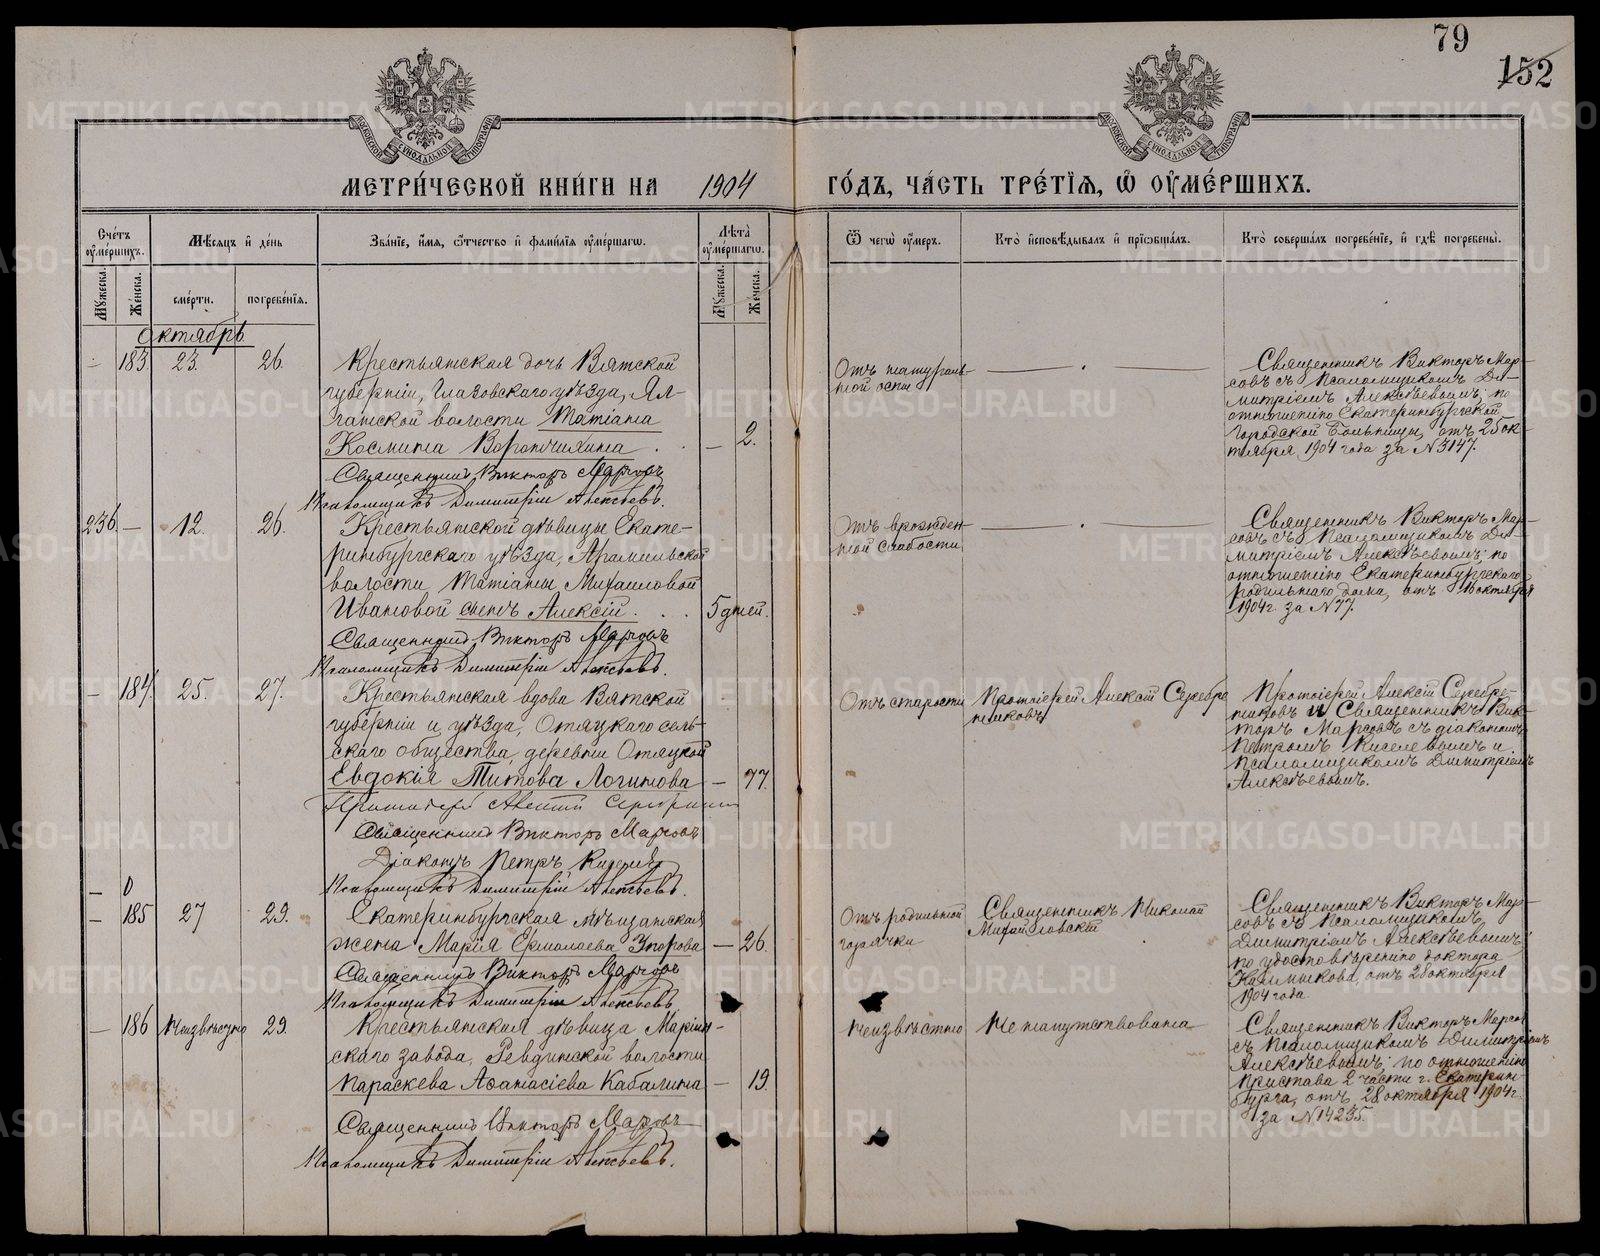 79
152
МОСКОВСКОЙ СѴНОДАЛЬНОЙ ТИПОГРАФІИ
МОСКОВСКОЙ СѴНОДАЛЬНОЙ ТИПОГРАФІИ
МЕТРИ́ЧЕСКОЙ КНИ́ГИ НА 1904 ГО́ДЪ, ЧА́СТЬ ТРЕ́ТЇѦ, Ѿ ОУМЕ́РШИХЪ.
Сче́тъ оумершихъ.
Мѣсяцъ и҆ де́нь
Зва́нїе, и҆́мѧ, ѻ҆́тчество и҆ фамилїѧ оумершагѡ.
Лѣта̀ оумершагѡ.
Ѿ чегѡ̀ оумеръ.
Кто̀ и҆сповѣдывалъ и҆ прїѡбща́лъ.
Кто̀ соверша́лъ погребе́нїе, и҆ гдѣ̀ погребены̀.
Мужеска.
Женска.
сме́рти.
погребе́нїѧ.
Мужеска.
Женска.
Октябрь
– 183. 23. 26.
Крестьянская дочь Вятской
губерніи, Глазовскаго уѣзда, Ял-
ганской волости Татіана
Космина Воропчихина . . – 2.
Священникъ Викторъ Марсовъ
Псаломщикъ Димитрій Алексѣевъ.
Отъ натураль-
ной оспы
Священникъ Викторъ Мар-
совъ съ Псаломщикомъ Ди-
митріемъ Алексѣевымъ; по
отношенію Екатеринбургской
городской больницы, отъ 25 ок-
тября 1904 года за N 3147.
236. – 12. 26.
Крестьянской дѣвицы Екате-
ринбургскаго уѣзда, Арамильской
волости, Татіаны Михаиловой
Ивановой сынъ Алексій . . . 5 дней.
Священникъ Викторъ Марсовъ
Псаломщикъ Димитрій Алексѣевъ.
Отъ врожден-
ной слабости
Священникъ Викторъ Мар-
совъ съ Псаломщикомъ Ди-
митріемъ Алексѣевымъ; по
отношенію Екатеринбургскаго
родильнаго дома, отъ октября
1904 г. за N 77.
– 184. 25. 27.
Крестьянская вдова Вятской
губерніи и уѣзда, Отяцкаго сель-
скаго общества, деревни Отяцкой
Евдокія Титова Логинова – 77.
Протоіерей Алексій Серебрянниковъ
Священникъ Викторъ Марсовъ
Діаконъ Петръ Киселевъ
Псаломщикъ Димитрій Алексѣевъ.
Отъ старости
Протоіерей Алексій Серебря-
никовъ
Протоіерей Алексій Серебре-
никовъ и Священникъ Вик-
торъ Марсовъ съ діакономъ
Петромъ Киселевымъ и
Псаломщикомъ Димитріемъ
Алексѣевымъ.
– 185 27 29.
Екатеринбургская мѣщанская
жена Марія Ермолаева Згорова – 26.
Священникъ Викторъ Марсовъ
Псаломщикъ Димитрій Алексѣевъ
Отъ родильной
горячки
Священникъ Николай
Михайловскій
Священникъ Викторъ Мар-
совъ съ Псаломщикомъ
Димитріемъ Алексѣевымъ;
по удостовѣренію доктора
Калмыкова, отъ 28 октября
1904 года
– 186 Неизвѣстно 29.
Крестьянская дѣвица Маріин-
скаго завода, Ревдинской волости
Параскева Аѳанасіева Кабалина – 19.
Священникъ Викторъ Марсовъ
Псаломщикъ Димитрій Алексѣевъ.
Неизвѣстно
Не напутствована
Священникъ Викторъ Марсовъ
съ Псаломщикомъ Димитріемъ
Алексѣевымъ; по отношенію
Пристава 2 части г. Екатерин-
бурга, отъ 28 октября 1904 г.
за N 14235.
METRIKI.GASO-URAL.RU